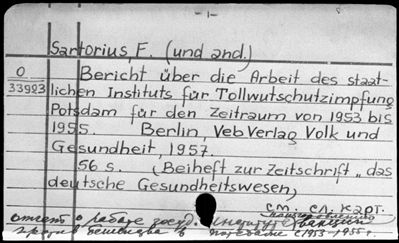 - 1 -
Sartorius, F. (und and.)
O
33993
Bericht über die Arbeit des staat-
lichen Instituts für Tollwutschutzimpfung
Potsdam für den Zeitraum von 1953 bis
1955. Berlin, Veb Verlag Volk und
Gesundheit, 1957.
56 s. (Beiheft zur Zeitschrift „das
deutsche Gesundheitswesen,
см. сл. карт.
отчет о работе госуд. института
против бешенства в Потсдаме с 1953-1955 г.